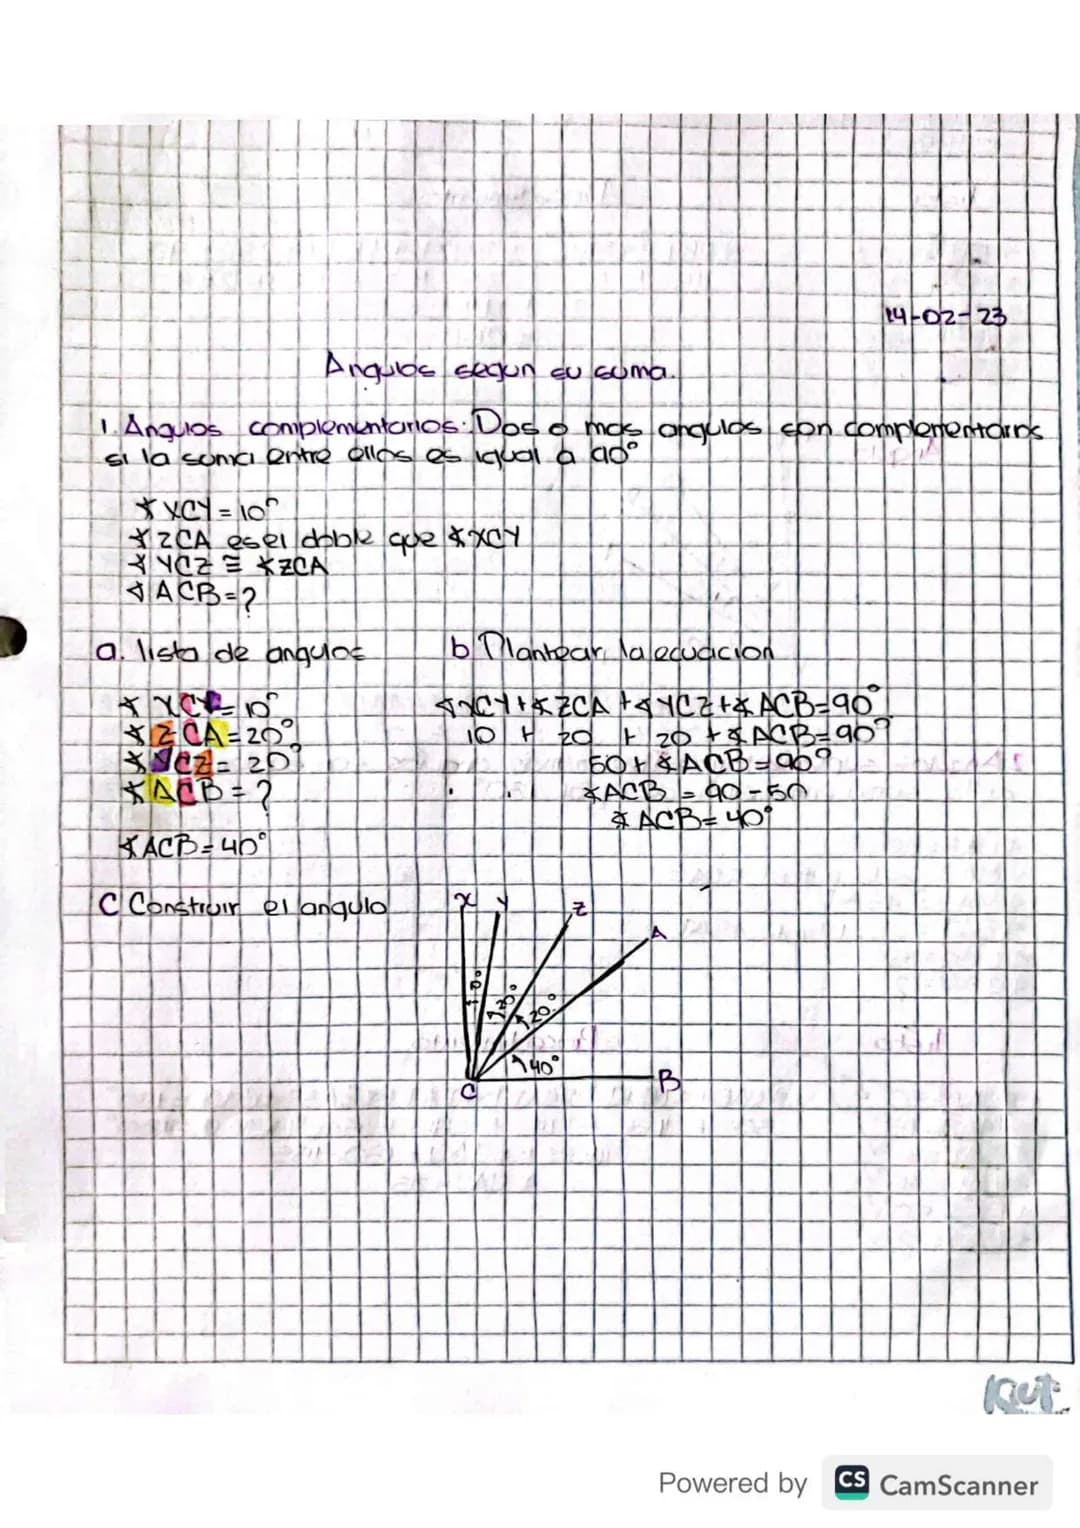 14-02-23
Angulos segun su suma.
1. Angulos complementarios: Dos o mas angulos son complementarios
si la suma entre ellos es igual a 90°
∡XCY=10°
∡ZCA es el doble que ∡XCY
∡YCZ ≅ ∡ZCA
∡ACB=?
a. lista de angulos
b Plantear la ecuacion
∡XCY=10°
∡ZCA=20°
∡YCZ=20°
∡ACB=?
∡ACB=40°
∡XCY+∡ZCA+∡YCZ+∡ACB=90°
10 + 20 + 20 +∡ACB=90°
50+∡ACB=90°
∡ACB = 90-50
∡ACB=40°
C Construir el angulo
x y z A
10° 20° 20°
40°
C B
Kut
Powered by CS CamScanner